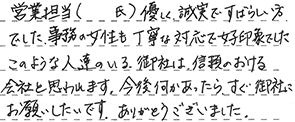 営業担当(　　氏)優しく、誠実ですばらしい方
でした。事務の女性も丁寧な対応で好印象でした
このような人達のいる御社は、信頼のおける
会社と思われます。今後何かあったら、すぐ御社に
お願いしたいです。ありがとうございました。